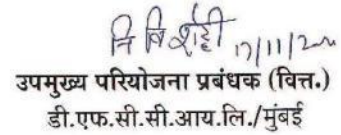 17/11/2
उपमुख्य परियोजना प्रबंधक (वित्त.)
डी.एफ.सी.सी.आय.लि./मुंबई